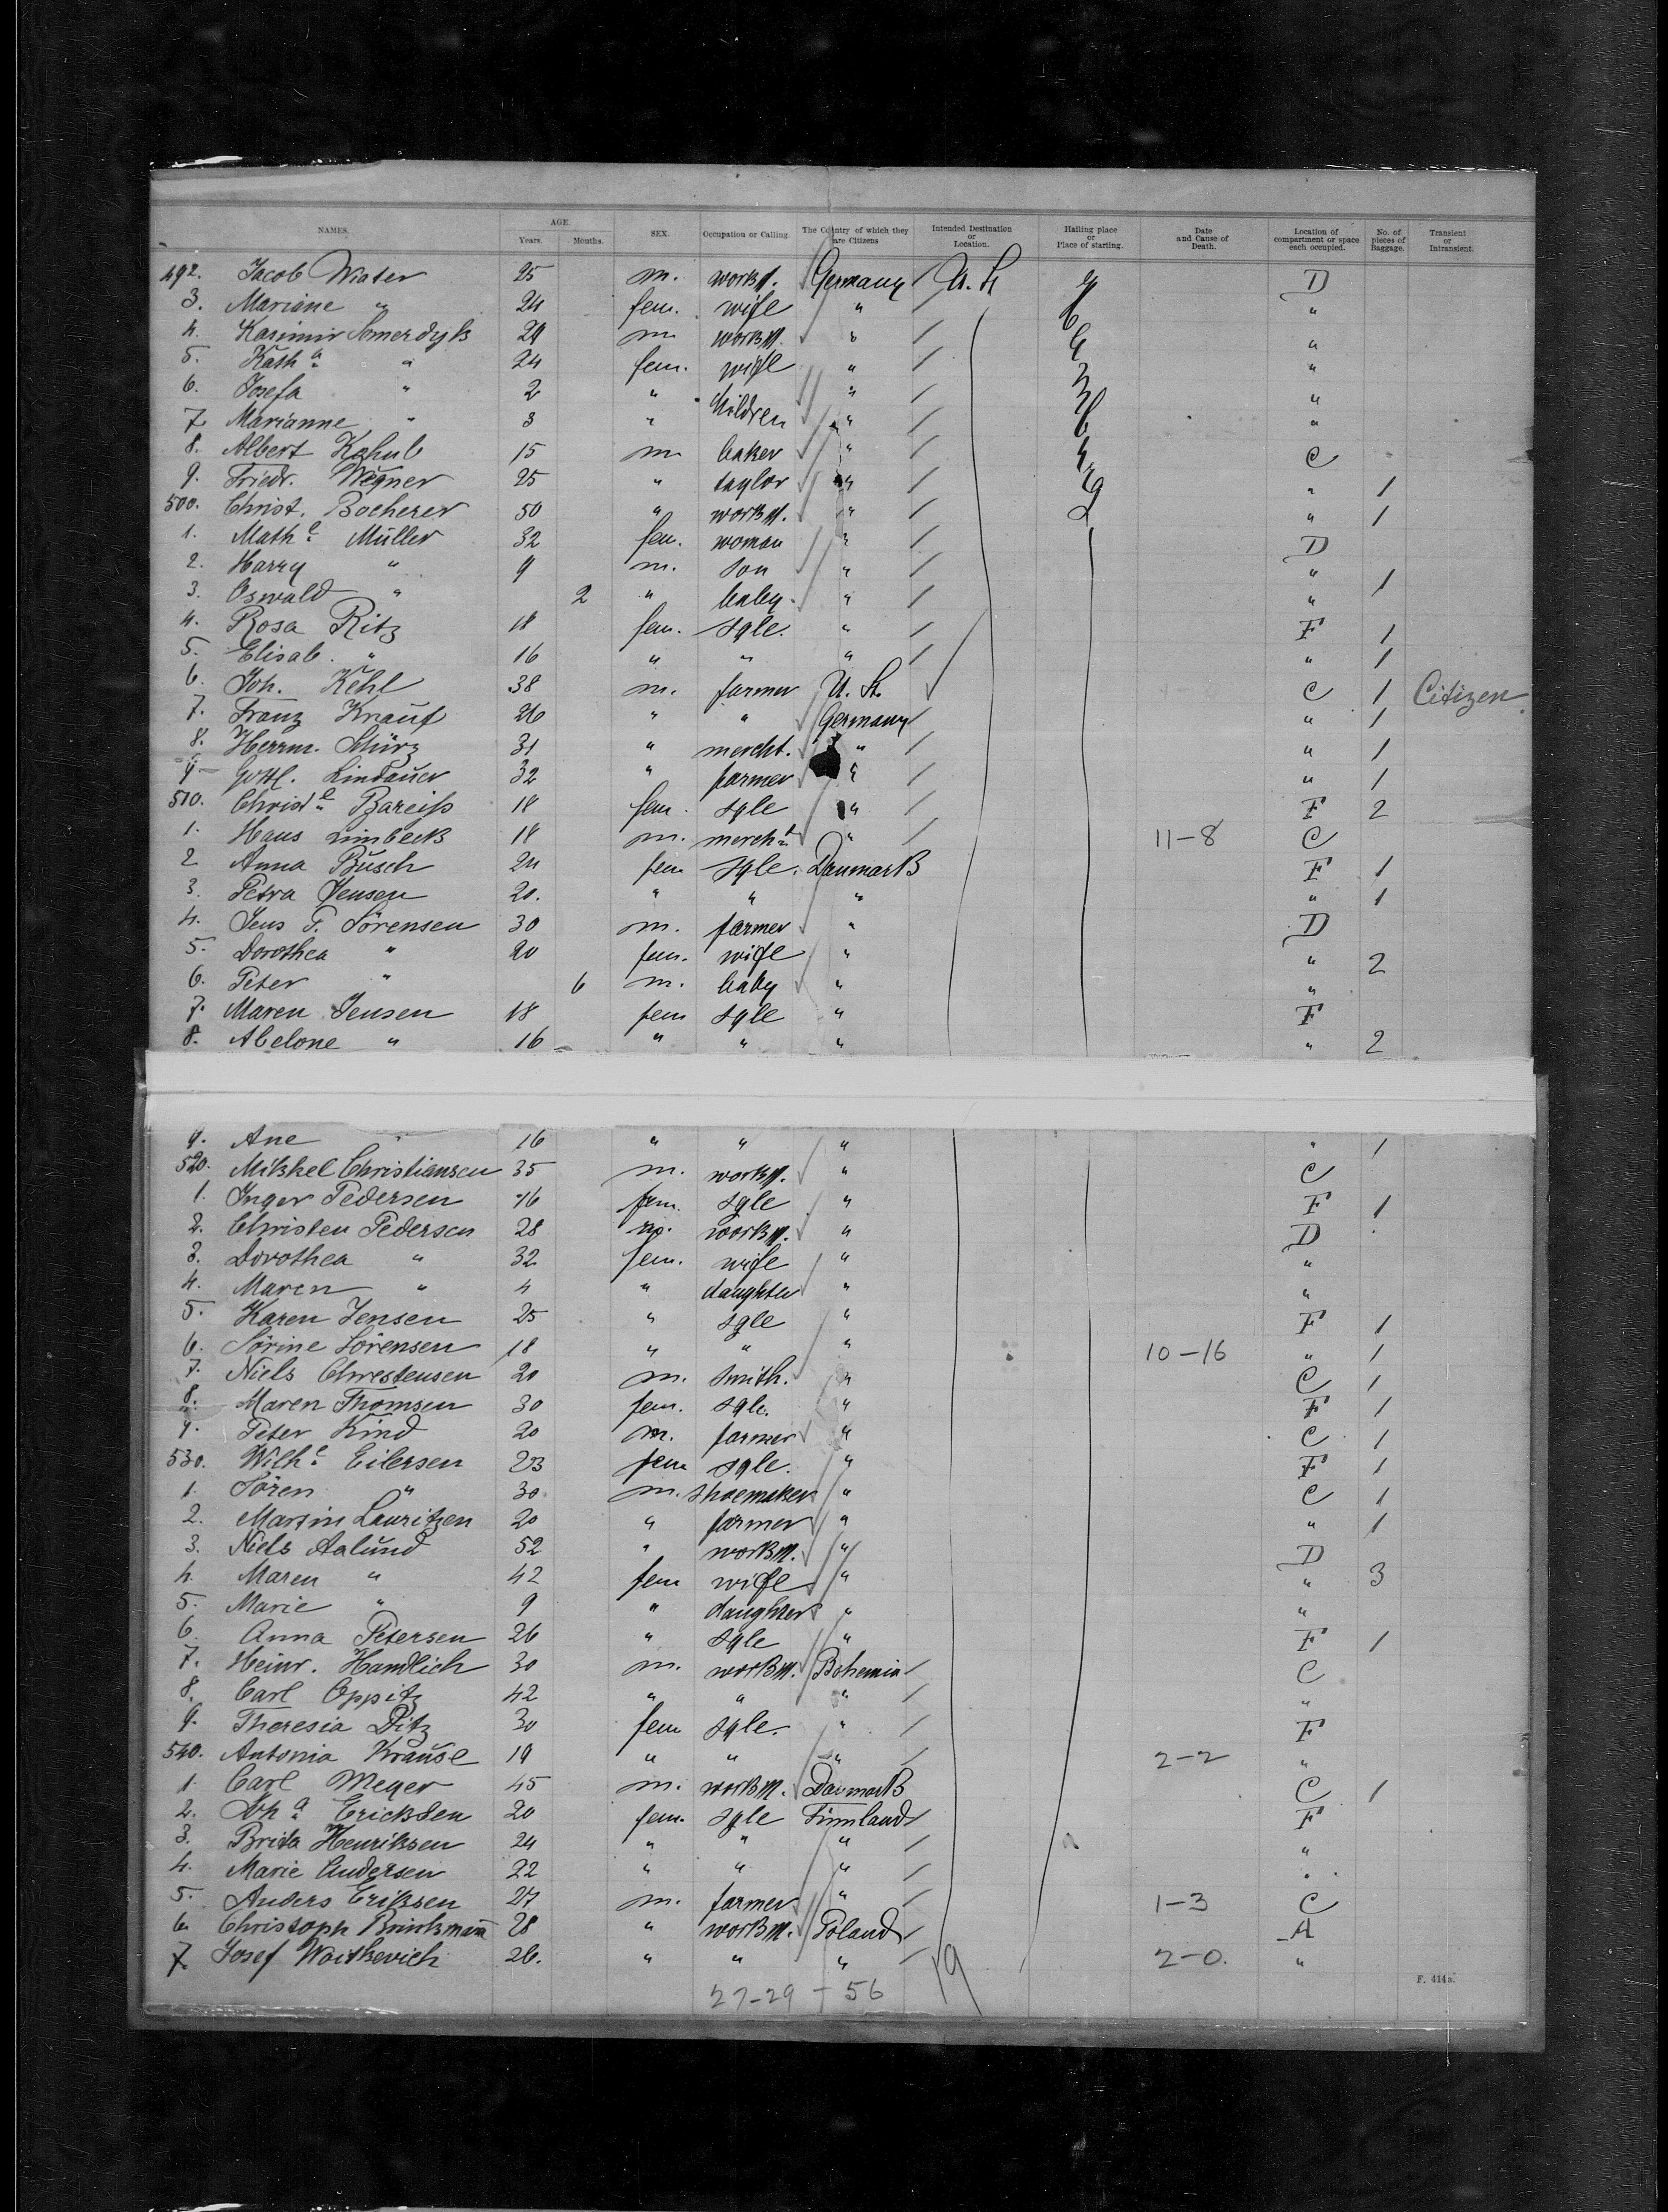 NAMES. AGE. Years. Months. SEX. Occupation or Calling. The Country of which they are Citizens Intended Destination or Location. Halling place or Place of starting. Date and Cause of Death. Location of compartment or space each occupied. No. of pieces of Baggage. Transient or Intransient.
492. Jacob Wiater 25 m. workm. Germany U. St. D
3. Mariane " 24 fem. wife " "
4. Kasimir Somerdyk 29 m workm. " "
5. Kath a " 24 fem. wife " "
6. Josefa " 2 " Children " "
7. Marianne " 3 " " "
8. Albert Kahub 15 m baker " C
9. Friedr. Wegner 25 " taylor " " 1
500. Christ. Bocherer 50 " workm. " " 1
1. Math e Müller 32 fem. woman " D
2. Harry " 9 m. son " " 1
3. Oswald " 2 " baby " "
4. Rosa Ritz 18 fem. sgle. " F 1
5. Elisab. " 16 " " " " 1
6. Joh. Kehl 38 m. farmer U. St. C 1 Citizen
7. Franz Knauf 26 " " Germany " 1
8. Herrm. Schürz 31 " mercht. " " 1
9 Gottl. Lindauer 32 " farmer " " 1
510. Christ e Bareiss 18 fem. sgle " F 2
1. Hans Limbeck 18 m. mercht " 11-8 C
2 Anna Busch 24 fem sgle. Danmark F 1
3. Petra Jensen 20. " " " " 1
4. Jens P. Sörensen 30 m. farmer " D
5. Dorothea " 20 fem. wife " " 2
6. Peter " 6 m. baby " "
7. Maren Jensen 18 fem sgle " F
8. Abelone " 16 " " " " 2
9. Ane " 16 " " " " 1
520. Mikkel Christiansen 35 m. workm. " C
1. Inger Pedersen 16 fem. sgle " F 1
2. Christen Pedersen 28 m. workm. " D
3. Dorothea " 32 fem. wife " "
4. Maren " 4 " daughter " "
5. Karen Jensen 25 " sgle " F 1
6. Sörine Sörensen 18 " " " 10-16 " 1
7. Niels Chrestensen 20 m. smith. " C 1
8. Maren Thomsen 30 fem. sgle. " F 1
9. Peter Kind 20 m. farmer " C 1
530. Wilh e Eilersen 23 fem sgle. " F 1
1. Sören " 30 m. shoemaker " C 1
2. Martin Lauritzen 20 " farmer " " 1
3. Niels Aalund 52 " workm. " D
4. Maren " 42 fem wife " " 3
5. Marie " 9 " daughter " "
6. Anna Petersen 26 " sgle " F 1
7. Heinr. Handlich 30 m. workm. Bohemia C
8. Carl Oppitz 42 " " " "
9. Theresia Ditz 30 fem sgle. " F
540. Antonia Krause 19 " " " 2-2 "
1. Carl Meyer 45 m. workm. Danmark C 1
2. Soph a Ericksen 20 fem. sgle Finnland F
3. Brita Henriksen 24 " " " "
4. Marie Andersen 22 " " " "
5. Anders Eriksen 27 m. farmer " 1-3 C
6. Christoph Brinkmann 28 " workm. Poland A
7. Josef Woitkevich 26. " " " 2-0. "
27-29 - 56 19
F. 414a.